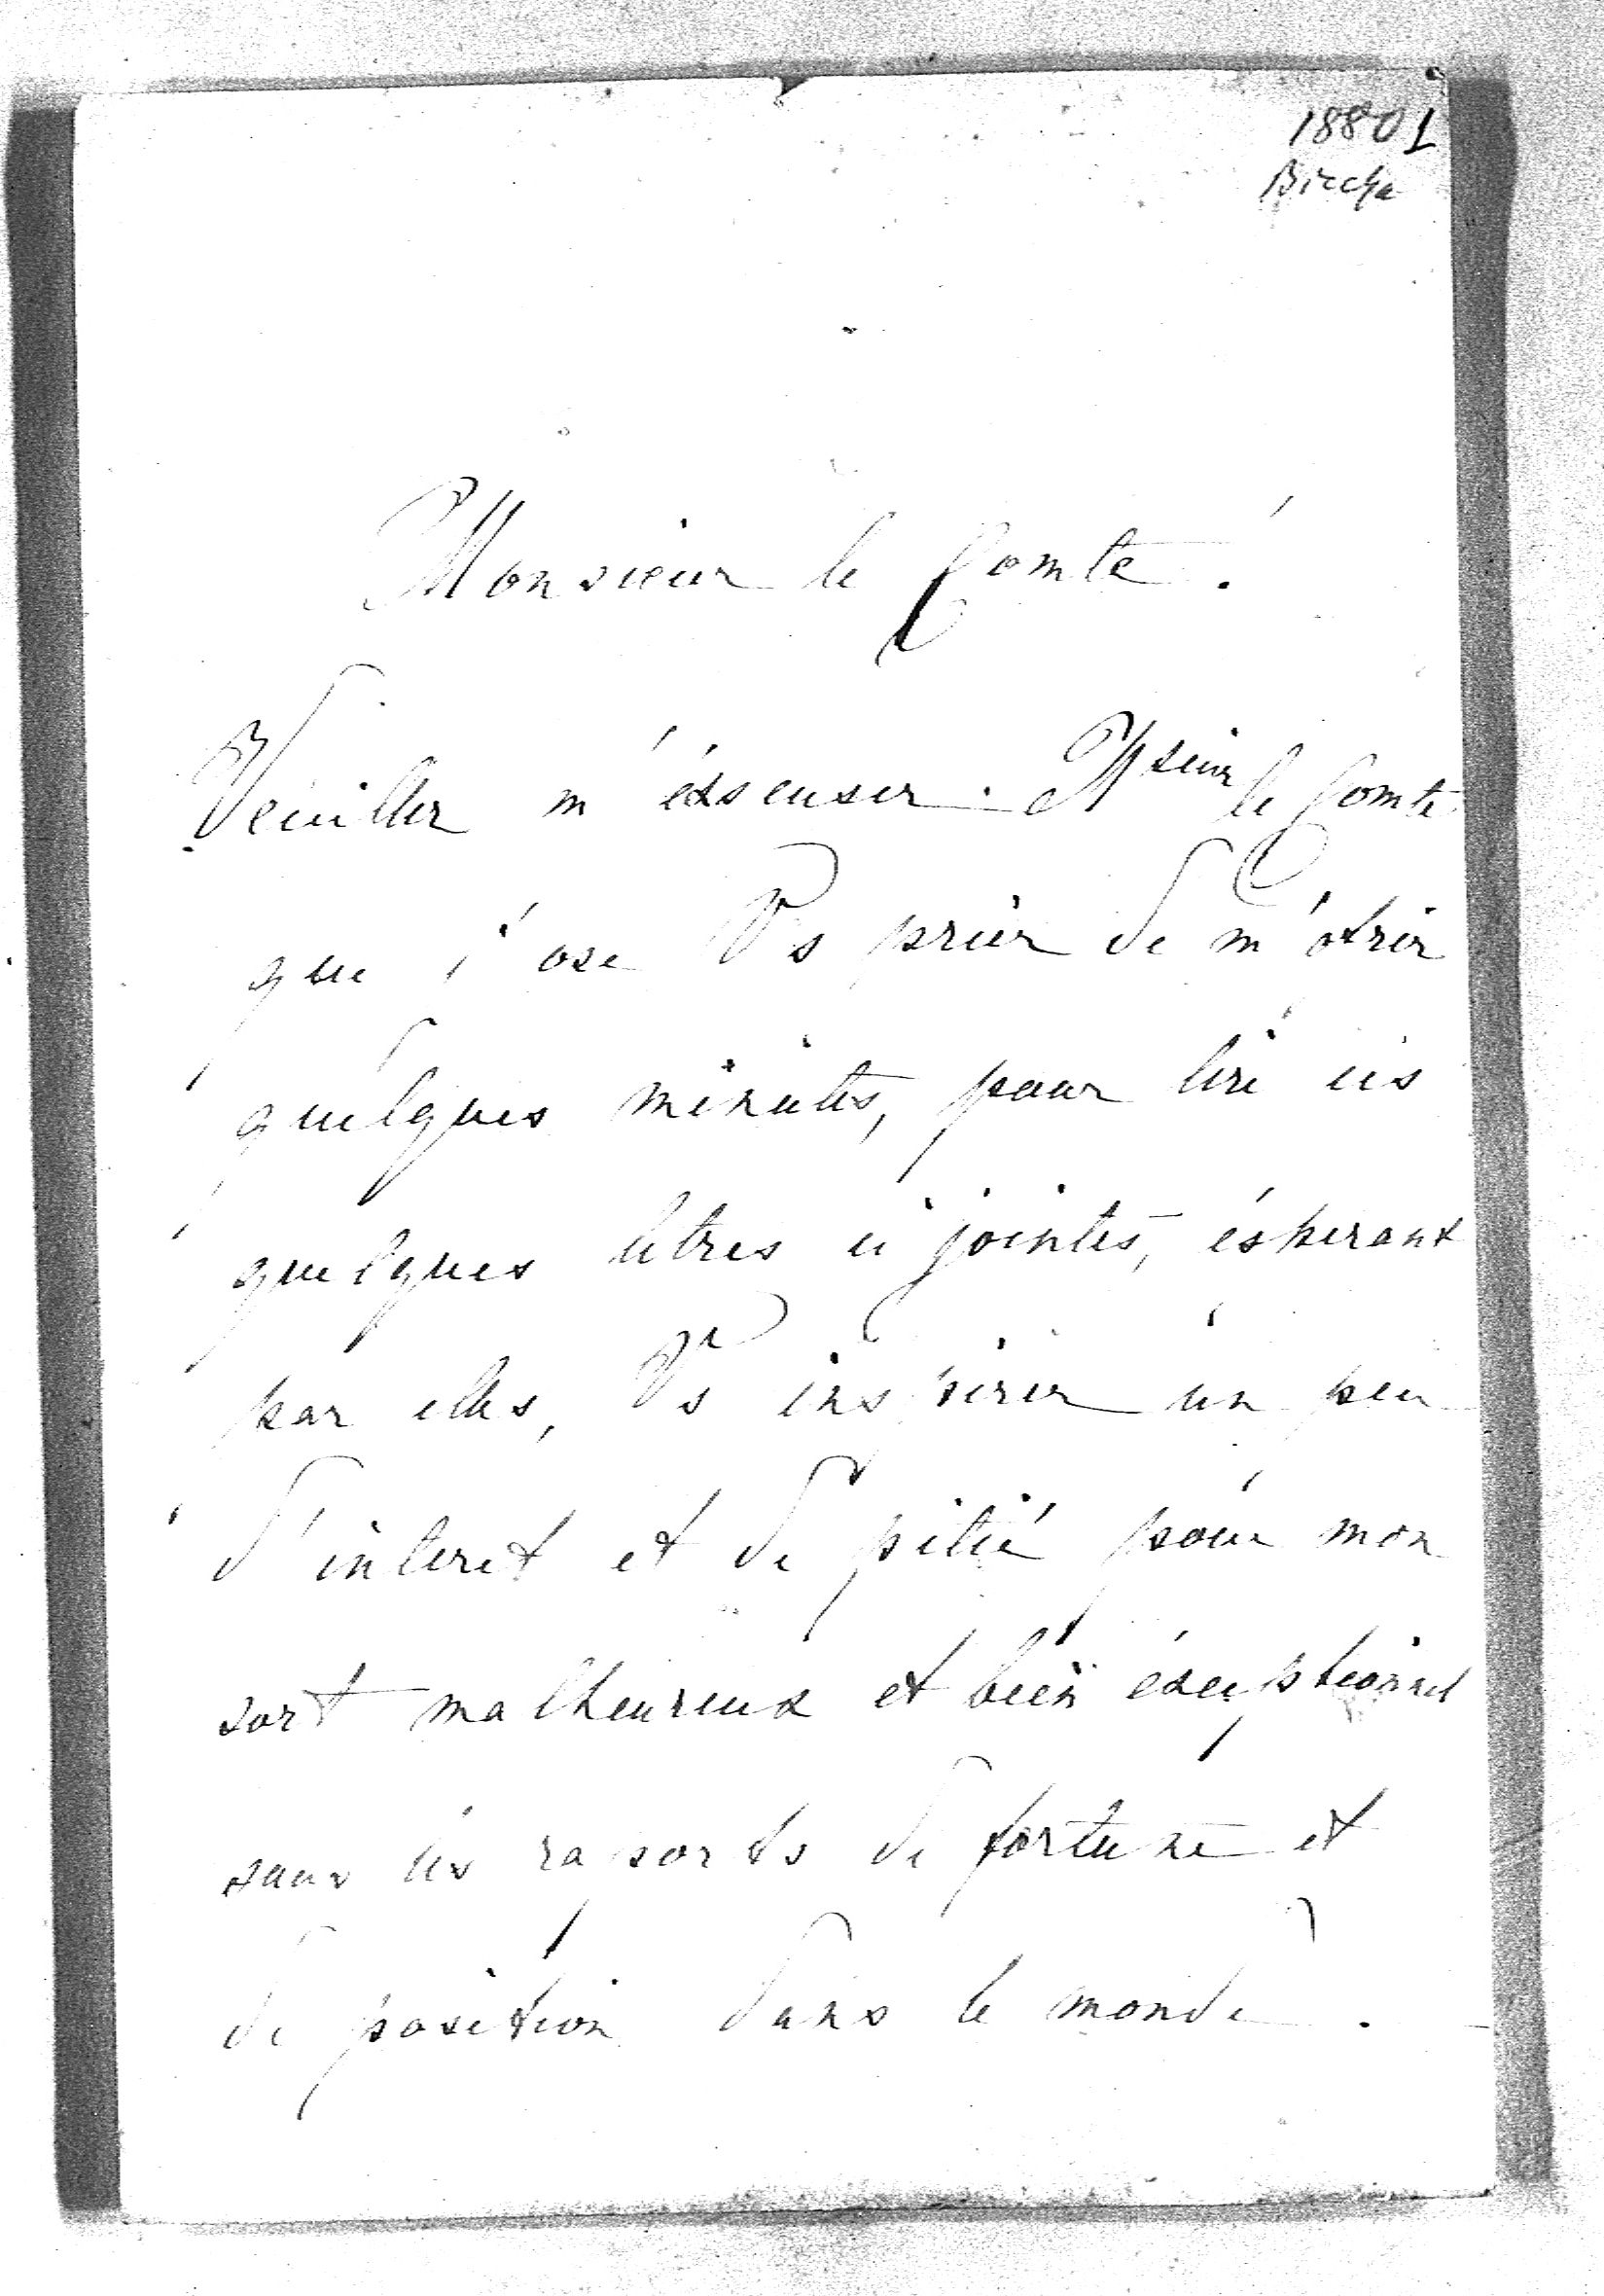 18801
Monsieur le Comte!
Veuiller m'éxscuser. Msieur le Comte
que j'ose Vs prier de m'otrir
quelques minutes, pour lire ces
quelques letres ci jointes, ésperant
par elles, Vs inspirer un peu
d'interet et de pitié pour mon
sort malheureux et bien éxeptionnel
sous les raports de fortune et
de position dans le monde.